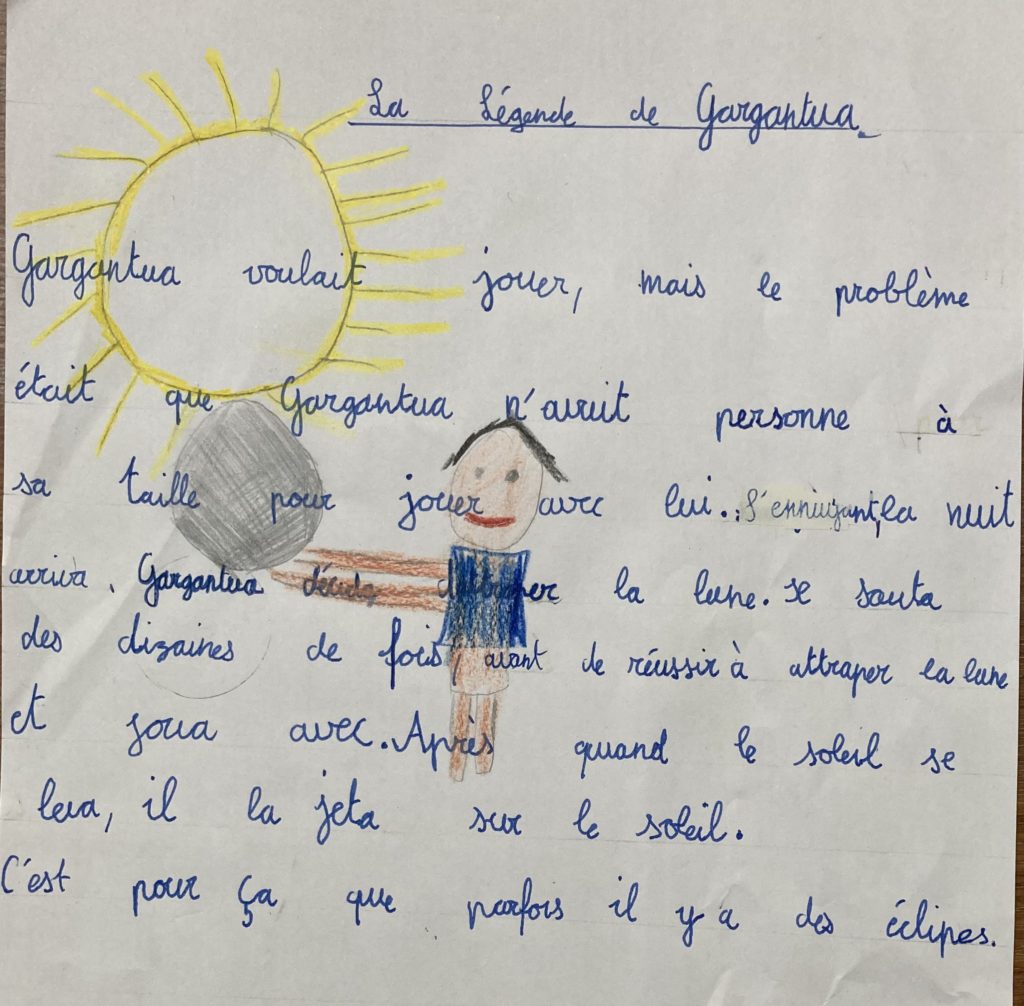 La Légende de Gargantua.
Gargantua voulait jouer, mais le problème
était que Gargantua n'avait personne à
sa taille pour jouer avec lui. S'ennuyant, la nuit
arriva. Gargantua décida d'attraper la lune. Il sauta
des dizaines de fois, avant de réussir à attraper la lune
et joua avec. Après quand le soleil se
leva, il la jeta sur le soleil.
C'est pour ça que parfois il y a des éclipes.